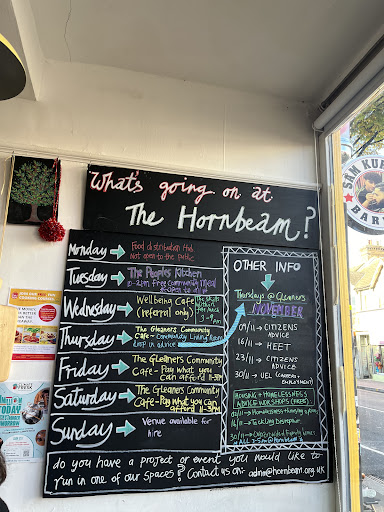 What's going on at
The Hornbeam?
Monday → Food distribution Hub
Not open to the public
Tuesday → The Peoples Kitchen
Free community meal
open to all
Wednesday → Wellbeing Cafe
(referral only)
3-9pm
Thursday → The Gleaners Community
Cafe - Community Living Room
Drop in advice
Friday → The Gleaners Community
Cafe - Pay what you
Can afford 11-3pm
Saturday → The Gleaners Community
Cafe - Pay what you can
afford 11-3pm
Sunday → Venue available for
hire
OTHER INFO
Thursdays @ Gleaners
NOVEMBER
09/11 → CITIZENS
ADVICE
16/11 → HEET
23/11 → CITIZENS
ADVICE
30/11 → UEL (CAREERS +
EMPLOYMENT)
HOUSING + HOMELESSNESS
ADVICE WORKSHOPS
16/11 → Tackling Disrepair
30/11 →
do you have a project or event you would like to
run in one of our spaces? Contact us on: admin@hornbeam.org.uk
BARBER
TODAY